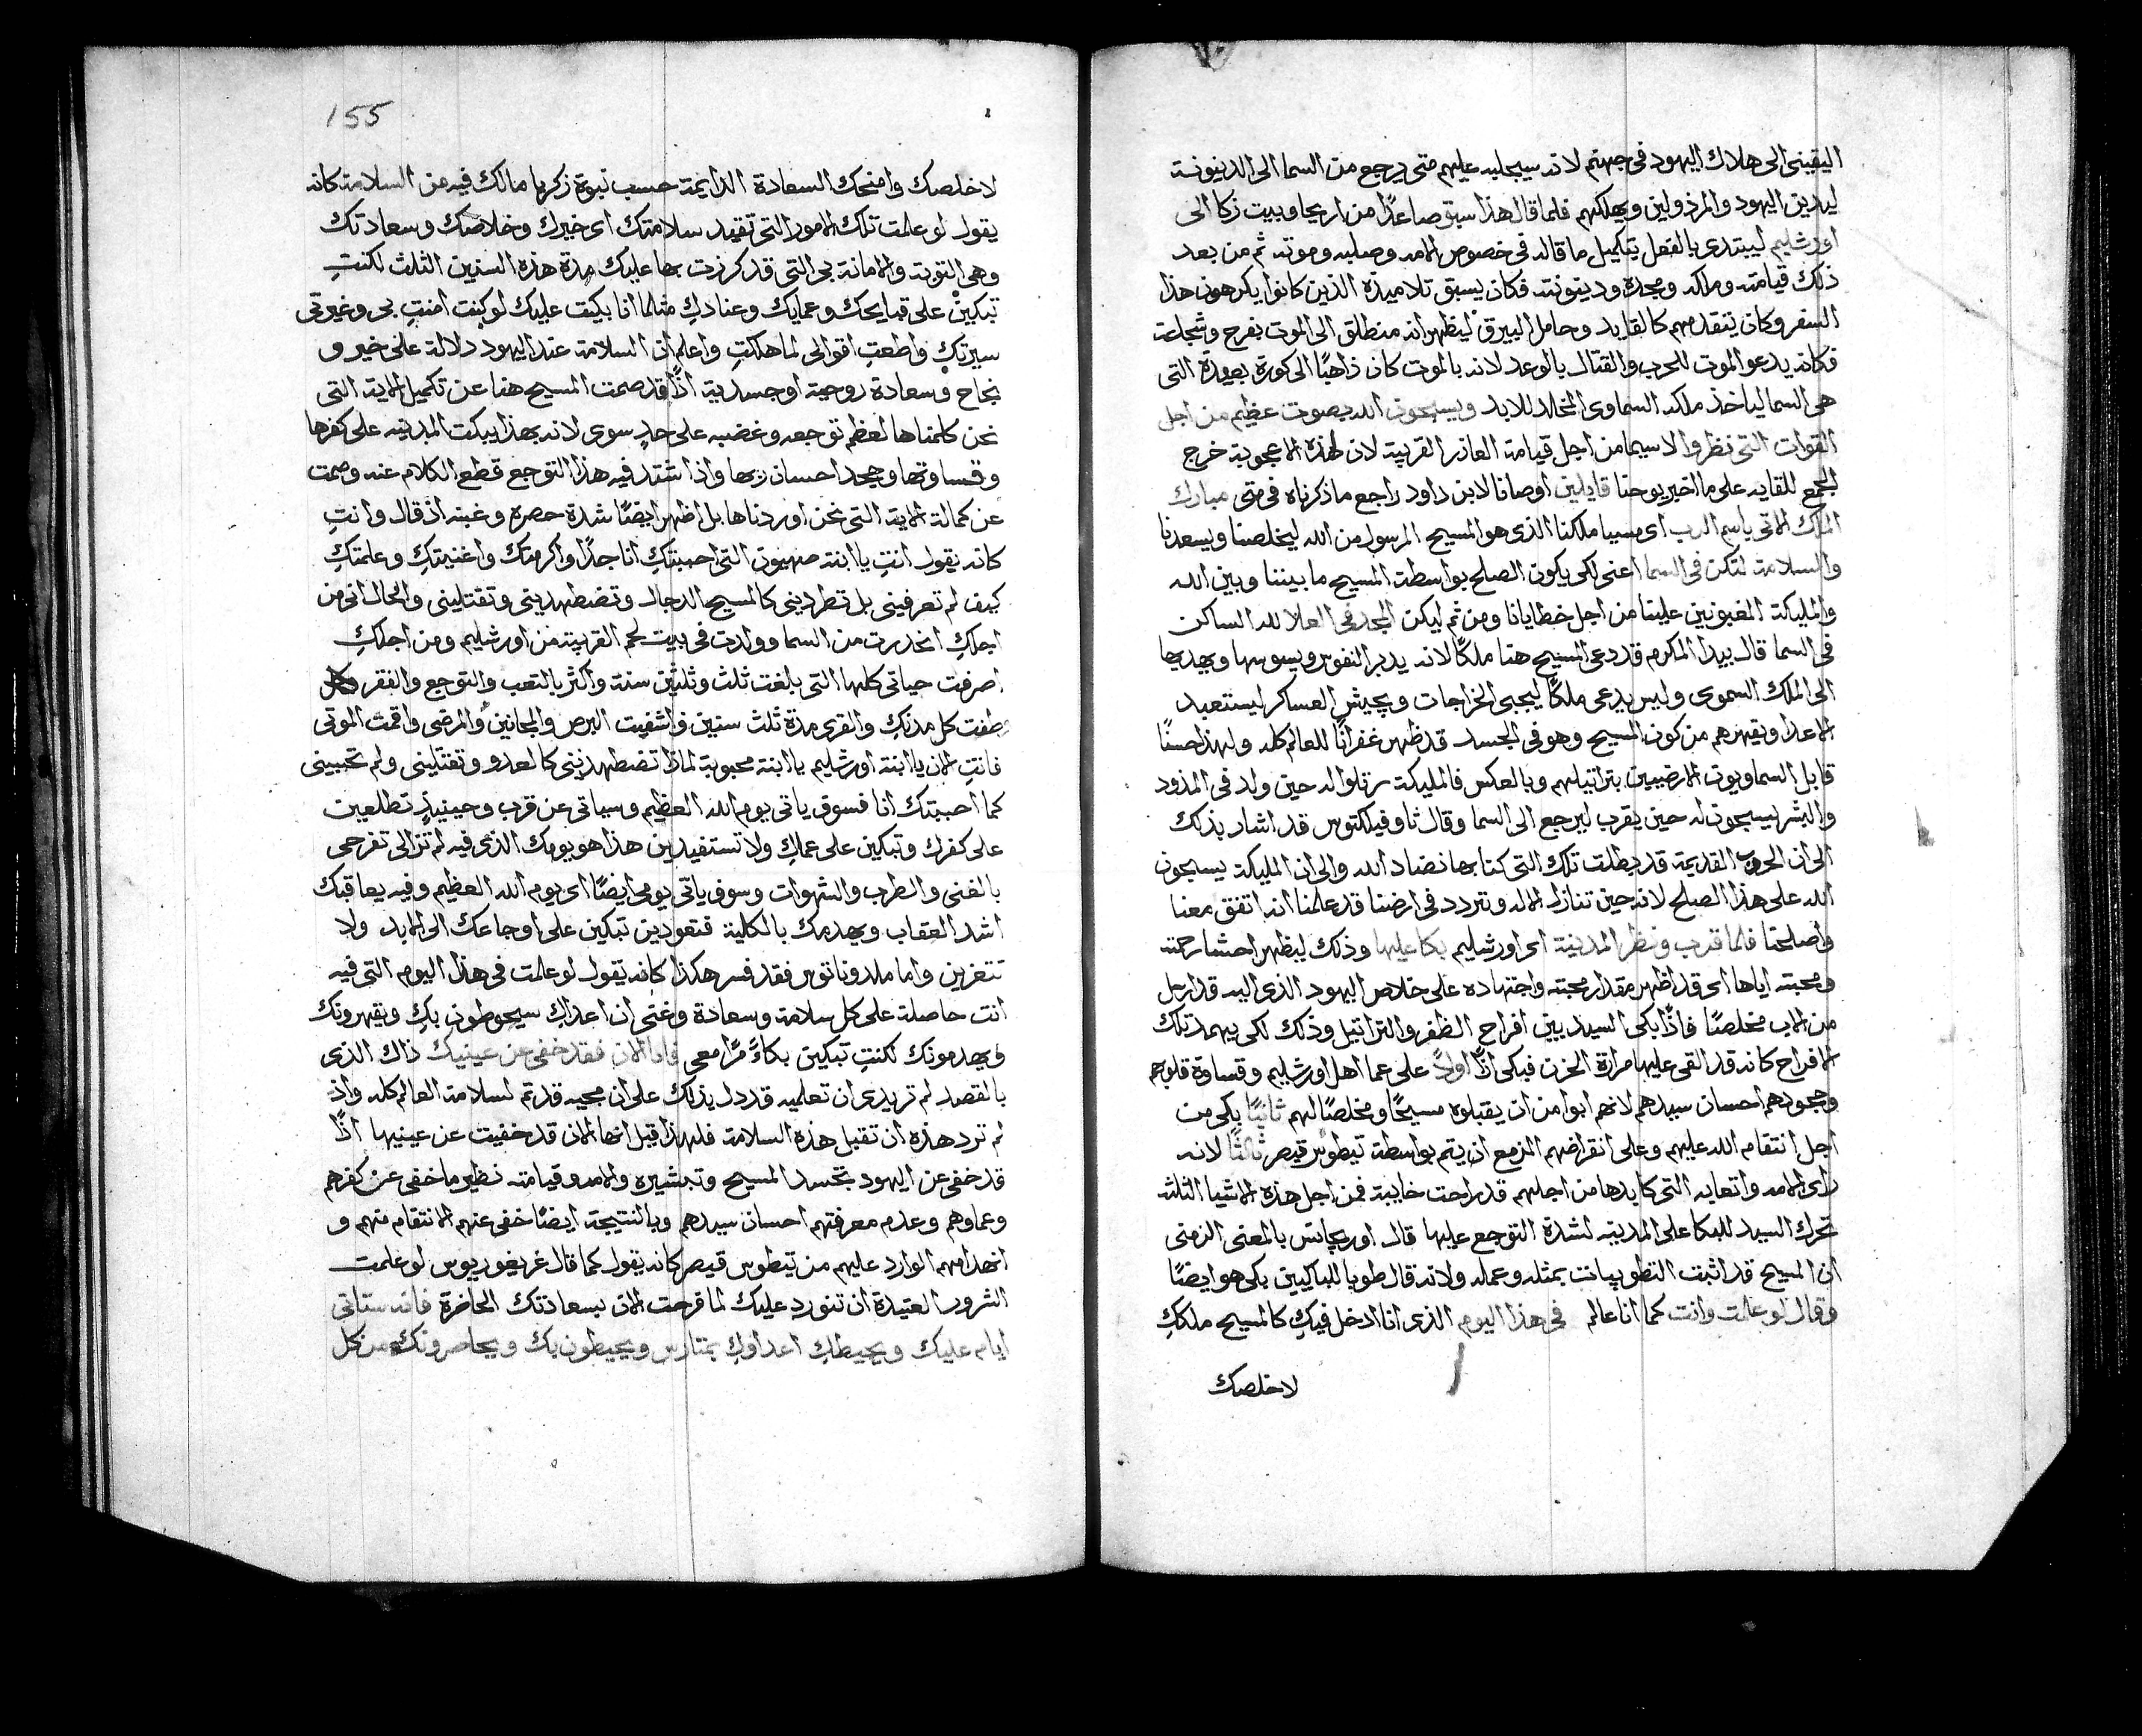 اليقيني الى هلاك اليهود في جهنم لانه سيجلبه عليهم متى يرجع من السما الى الدينونة
ليدين اليهود والمرذولين ويهلكهم فلما قال هذا سبق صاعدًا من اريحا وبيت زكا الى
اورشليم ليبتدي بالفعل بتكميل ما قاله في خصوص الامه وصلبه وموته ثم من بعد
ذلك قيامته وملكه ومجده ودينونته فكان يسبق تلاميذه الذين كانوا يكرهون هذا
السفر وكان يتقدمهم كالقايد وحامل البيرق ليظهر انه منطلق الى الموت بفرح وشجاعة
فكانه يدعو الموت للحرب والقتال بالوعد لانه بالموت كان ذاهبًا الى كورة بعيدة التي
هي السما لياخذ ملكه السماوي المخلد للابد ويسبحون الله بصوت عظيم من اجل
القوات التي نظروا لا سيما من اجل قيامة العازر القريبة لان لهذه الاعجوبة خرج
الجمع للقايه على ما اخبر يوحنا قايلين اوصانا لابن داود راجع ما ذكرناه في متى مبارك
الملك الاتي باسم الرب اي مسيا ملكنا الذي هو المسيح المرسول من الله ليخلصنا ويسعدنا
والسلامة لتكن في السما اعني لكي يكون الصلح بواسطة المسيح ما بيننا وبين الله
والمليكة المغبونين علينا من اجل خطايانا ومن ثم ليكن المجد في العلا لله الساكن
في السما قال بيدا المكرم قد دعي المسيح هنا ملكًا لانه يدبر النفوس ويسوسها ويهديها
الى الملك السموي وليس يدعى ملكًا ليجبي الخراجات ويجيش العساكر ليستعبد
الاعدا ويقهرهم من كون المسيح وهو في الجسد قد ظهر غفرانًا للعالم كله ولهذا حسنًا
قابل السماويون الارضيين بتراتيلهم وبالعكس فالمليكة رتلوا له حين ولد في المذود
والبشر يسبحون له حين يقرب ليرجع الى السما وقال ثاوفيلكتوس قد اشار بذلك
الى ان الحروب القديمة قد بطلت تلك التي كنا بها نضاد الله والى ان المليكة يسبحون
الله على هذا الصلح لانه حين تنازل الاله وتردد في ارضنا قد علمنا انه اتفق معنا
واصلحنا فلما قرب ونظر المدينة اي اورشليم بكا عليها وذلك ليظهر احشا رحمته
ومحبته اياها اي قد اظهر مقدار محبته واجتهاده على خلاص اليهود الذي اليه قد ارسل
من الاب مخلصًا فاذًا بكى السيد بين افراح الظفر والتراتيل وذلك لكي يهمد تلك
الافراح كانه قد القى عليها مرارة الحزن فبكى اذًا اولًا على عما اهل اورشليم وقساوة قلوبهم
وجحودهم احسان سيدهم لانهم ابوا من ان يقبلوه مسيحًا ومخلصًا لهم ثانيًا بكى من
اجل انتقام الله عليهم وعلى انقراضهم المزمع ان يتم بواسطة تيطوس قيصر ثالثًا لانه
راى الامه واتعابه التي كابدها من اجلهم قد راحت خايبة فمن اجل هذه الاشيا الثلثة
تحرك السيد للبكا على المدينة لشدة التوجع عليها قال اوريجانس بالمعنى الزمني
ان المسيح قد اثبت التطويبات بمثله وعمله ولانه قال طوبا للباكيين بكى هو ايضًا
وقال لو علمت وانت كما انا عالم في هذا اليوم الذي انا ادخل فيكِ كالمسيح ملككِ
لاخلصك
155
لاخلصك وامنحك السعادة الدايمة حسب نبوة زكريا ما لك فيه من السلامة كانه
يقول لو علمت تلك الامور التي تفيد سلامتك اي خيرك وخلاصك وسعادتك
وهي التوبة والامانة بي التي قد كرزت بها عليك مدة هذه السنين الثلث لكنتِ
تبكين على قبايحك وعمايك وعنادكِ مثلما انا بكيت عليك لو كنت امنتِ بي وغيرتي
سيرتكِ واطعتِ اقوالي لما هلكتِ واعلم ان السلامة عند اليهود دلالة على خير و
نجاح وسعادة روحية او جسدية اذًا قد صمت المسيح هنا عن تكميل الاية التي
نحن كلمناها لعظم توجعه وغضبه على حدٍ سوى لانه بهذا يبكت المدينة على كفرها
وقساوتها وجحد احسان ربها واذ اشتد فيه هذا التوجع قطع الكلام عنه وصمت
عن كمالة الاية التي نحن اوردناها بل اظهر ايضًا شدة حصره وغبنه اذ قال وانتِ
كانه يقول انتِ يا ابنة صهيون التي احببتكِ انا جدًا واكرمتك واغنيتكِ وعلمتكِ
كيف لم تعرفيني بل تطرديني كالمسيح الدجال وتضطهديني وتقتليني والحال اني من
اجلكِ انحدرت من السما وولدت في بيت لحم القريبة من اورشليم ومن اجلكِ
اصرفت حياتي كلها التي بلغت ثلث وثلثين سنة واكثر بالتعب والتوجع والفقر
وطفت كل مدنكِ والقرى مدة ثلث سنين واشفيت البرص والمجانين والمرضى واقمت الموتى
فانتِ الان يا ابنة اورشليم يا ابنة محبوبة لماذا تضطهديني كالعدو وتقتليني ولم تحبيني
كما احببتك انا فسوف ياتي يوم الله العظيم وسياتي عن قرب وحينيذٍ تطلعين
على كفرك وتبكين على عملكِ ولا تستفيدين هذا هو يومك الذي فيه لم تزالي تفرحي
بالغنى والطرب والشهوات وسوف ياتي يومي ايضًا اي يوم الله العظيم وفيه يعاقبك
اشد العقاب ويهدمك بالكلية فتعودين تبكين على اوجاعك الى الابد ولا
تتعزين واما ملدوناتوس فقد فسر هكذا كانه يقول لو علمت في هذا اليوم التي فيه
انت حاصلة على كل سلامة وسعادة وغنى ان اعداكِ سيحوطون بكِ ويقهرونك
ويهدمونك لكنتِ تبكين بكاءً مرًا معي فاما الان فقد خفي عن عينيك ذاك الذي
بالقصد لم تريدي ان تعلميه قد دل بذلك على ان مجيه قد تم لسلامة العالم كله واذ
لم ترد هذه ان تقبل هذه السلامة فلهذا قيل انها الان قد خفيت عن عينيها اذًا
قد خفي عن اليهود تجسد المسيح وتبشيره والامه وقيامته نظير ما خفي عن كفرهم
وعماوهم وعدم معرفتهم احسان سيدهم وبالنتيجة ايضًا خفي عنهم الانتقام منهم و
انهدامهم الوارد عليهم من تيطوس قيصر كانه يقول كما قال غريغوريوس لو علمت
الشرور العتيدة ان تنورد عليك لما فرحت الان بسعادتك الحاضرة فانه ستاتي
ايام عليك ويحيطكِ اعداوكِ بمتارس ويحيطون بك ويحاصرونك من كل